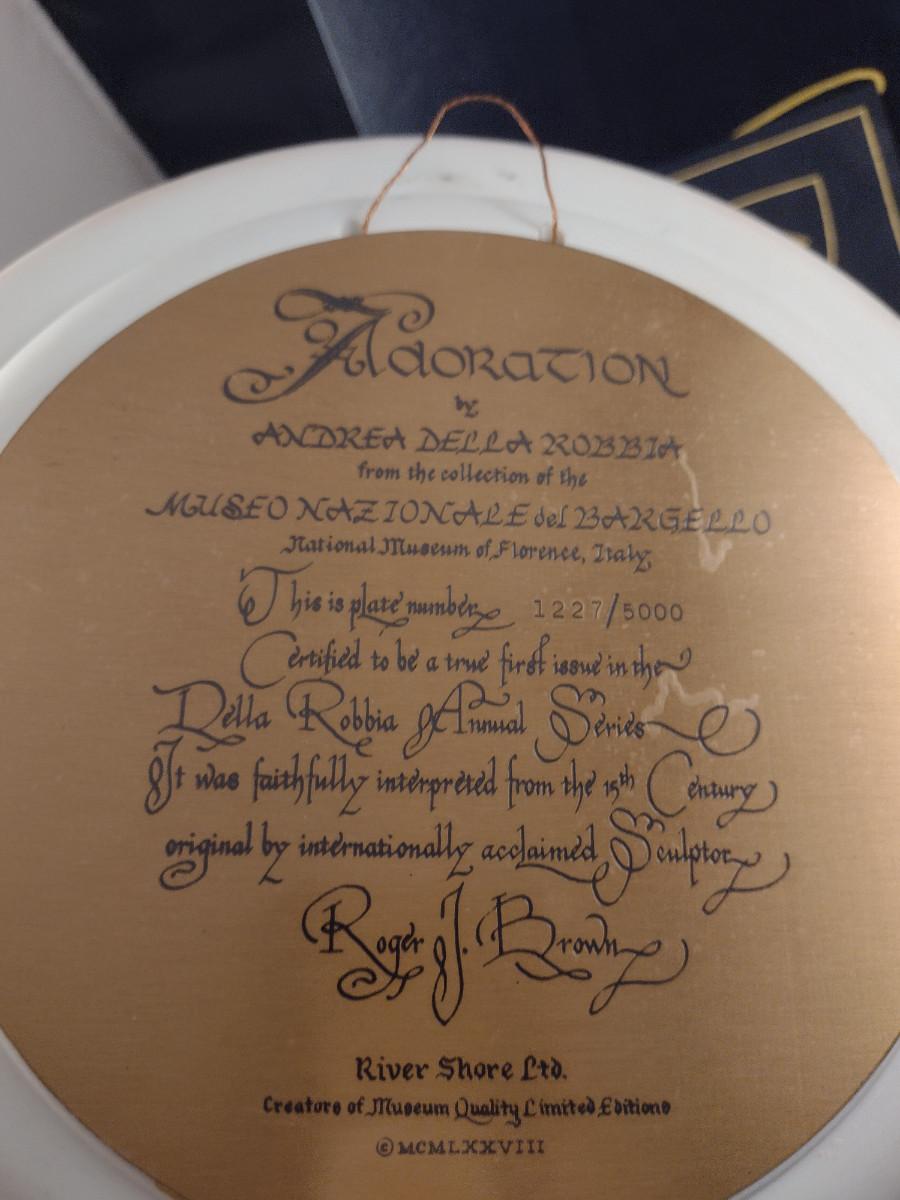 Adoration
by
ANDREA DELLA ROBBIA
from the collection of the
MUSEO NAZIONALE del BARGELLO
National Museum of Florence, Italy
This is plate number 1227/5000
Certified to be a true first issue in the
Della Robbia Annual Series
It was faithfully interpreted from the 15th Century
original by internationally acclaimed Sculptor
Roger J. Brown
River Shore Ltd.
Creators of Museum Quality Limited Editions
©MCMLXXVIII